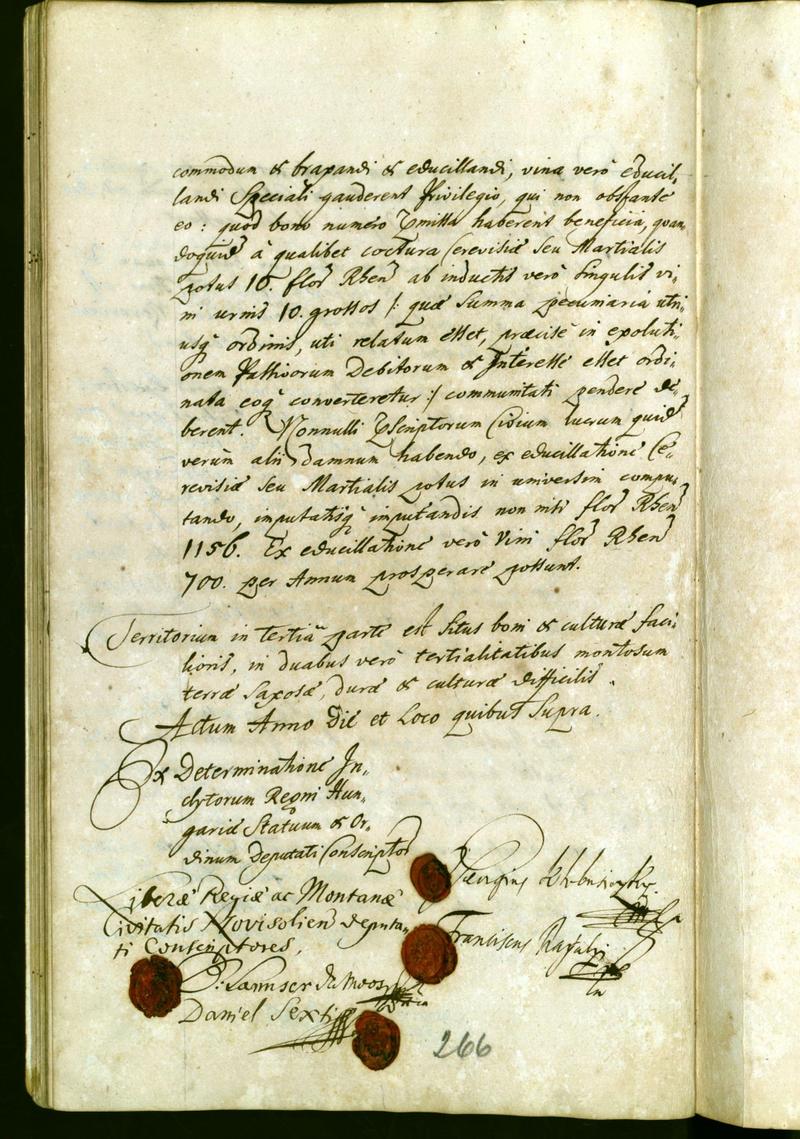 commodum & braxandi & educillandi, vina verò educil,
landi Speciali gauderent Privilegio, qui non obstante
eo: quòd bono numero haberent beneficia, quan,
doquid à qualibet coctura Cerevisiæ seu Martialis
potus 10. flor Rhen ab inductis verò singulis vi,
ni urnis 10. grossos /: quæ Summa pecuniaria utri,
usq ordinis, uti relatum esset, præcisè in exoluti,
onem Passivorum Debitorum & Interesse esset ordi,
nata eoq converteretur :/ communitati pendere de,
berent. Nonnulli Civium lucrum quid
verùm alii damnum habendo, ex educillatione Ce,
revisiæ seu Martialis potus in universim compu,
tando, imputatisq imputandis non nisi flor Rhen
1156. Ex educillatione verò Vini flor Rhen
700. per Annum prosperare possunt.
Territorium in tertiâ parte est situs boni & culturæ faci,
lioris, in duabus verò tertialitatibus montosum
terræ Saxosæ, duræ & culturæ difficilis.
Actum Anno Die et Loco quibus Supra.
Ex Determinatione In,
clytorum Regni Hun,
gariæ Statuum & Or,
dinum Deputati Conscriptor
Georgius
Liberæ Regiæ ac Montanæ
Civitatis Novisolien deputa,
ti Conscriptores,
Franciscus
Daniel
266